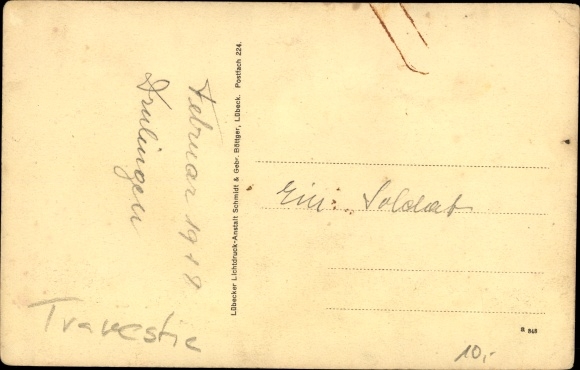 Februar 1918
Drulingen
Travestie
Lübecker Lichtdruck-Anstalt Schmidt & Gebr. Böttger, Lübeck. Postfach 224.
Ein: Soldat
10,-